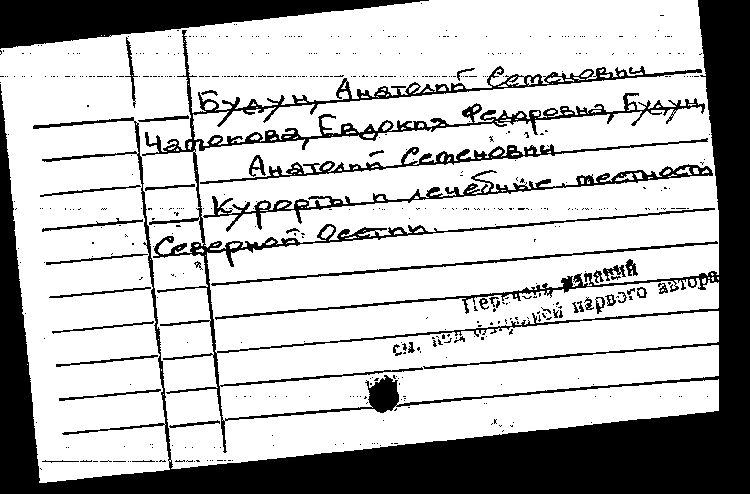 Будун, Анатолий Семенович
Чатокова, Евдокия Федоровна, Будун,
Анатолий Семенович
Курорты и лечебные местности
Северной Осетии.
Перечень изданий
см. под фамилией первого автора